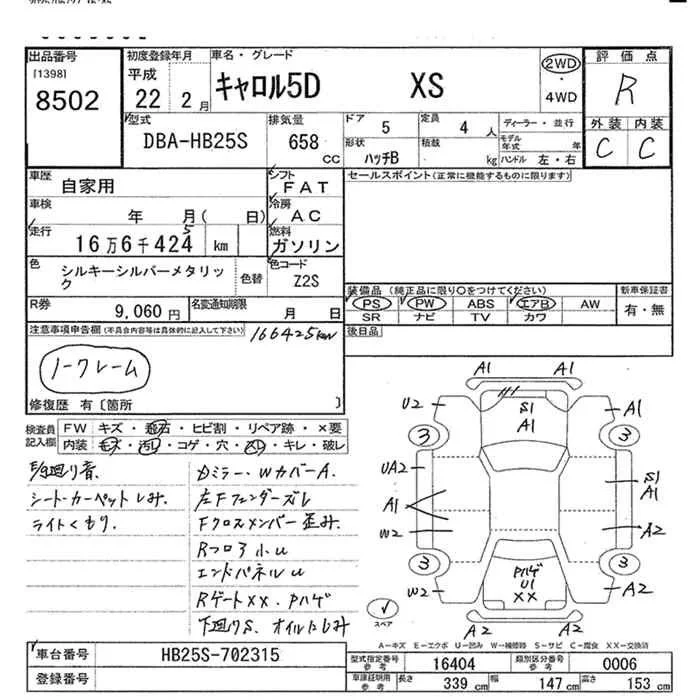 出品番号
[1398]
8502
初度登録年月
平成
22 2月
車名・グレード
キャロル5D XS
2WD
・
4WD
評価点
R
型式
DBA-HB25S
排気量
658
CC
ドア 5
定員 4 人
ディーラー・並行
外装 内装
C C
形状 ハッチB
積載 kg
モデル年式 年
ハンドル 左・右
車歴
自家用
シフト
FAT
セールスポイント(正常に機能するものに限ります)
車検
年 月( 日)
冷房
AC
走行
16万6千424 km
5
燃料
ガソリン
色
シルキーシルバーメタリック
色替
色コード
Z2S
装備品(純正品に限り○をつけてください)
新車保証書
PS PW ABS エアB AW
有・無
SR ナビ TV カワ
R券
9,060円
名変通知期限
月 日
後日品
注意事項申告欄(不具合内容等は具体的に記入して下さい)
166425km
ノークレーム
修復歴 有〔箇所 〕
検査員記入欄
FW キズ・飛石・ヒビ割・リペア跡・×要
内装 キズ・汚れ・コゲ・穴・スレ・キレ・破レ
シート・カーペットしみ.
ライトくもり.
Dミラー・WカバーA.
左Fフェンダーズレ
Fクロスメンバー歪み.
Rフロア小u
エンドパネルu
RゲートXX. Pハゲ
下廻りS. オイルにじみ
A1
A1
U2
S1
A1
A1
3
3
UA2
S1
A1
A1
W2
A2
3
3
W2
Pハゲ
U1
XX
A2
A2
A2
スペア
A-キズ E-エクボ U-凹み W-補修跡 S-サビ C-腐食 XX-交換済
車台番号
HB25S-702315
登録番号
型式指定番号
参考
16404
類別区分番号
参考
0006
車庫証明用
参考
長さ 339 cm
幅 147 cm
高さ 153 cm